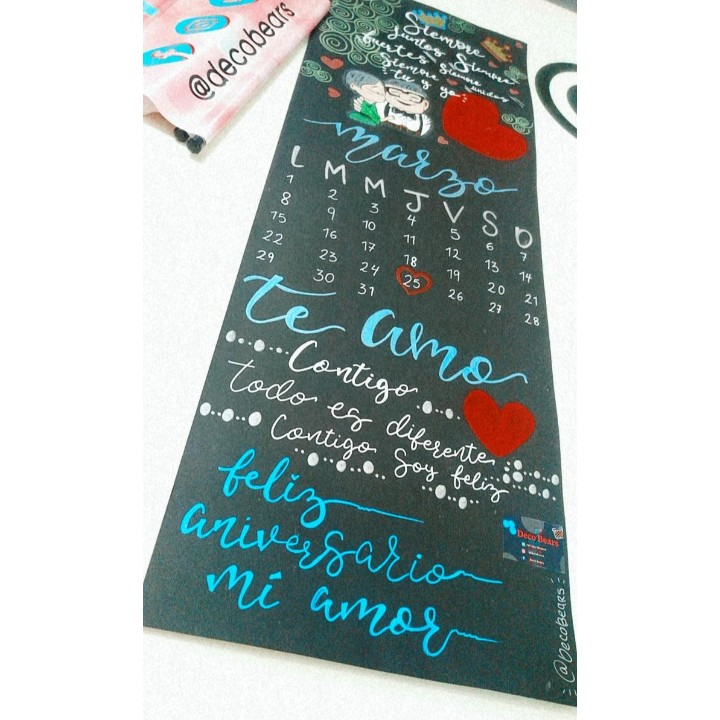 @decobears
Siempre
juntos Siempre
fuertes Siempre
Siempre unidos
tu y yo
marzo
L M M J V S D
1 2 3 4 5 6 7
8 9 10 11 12 13 14
15 16 17 18 19 20 21
22 23 24 25 26 27 28
29 30 31
te amo
Contigo
todo es diferente
Contigo Soy feliz
feliz
aniversario
mi amor
Deco Bears
@Decobears